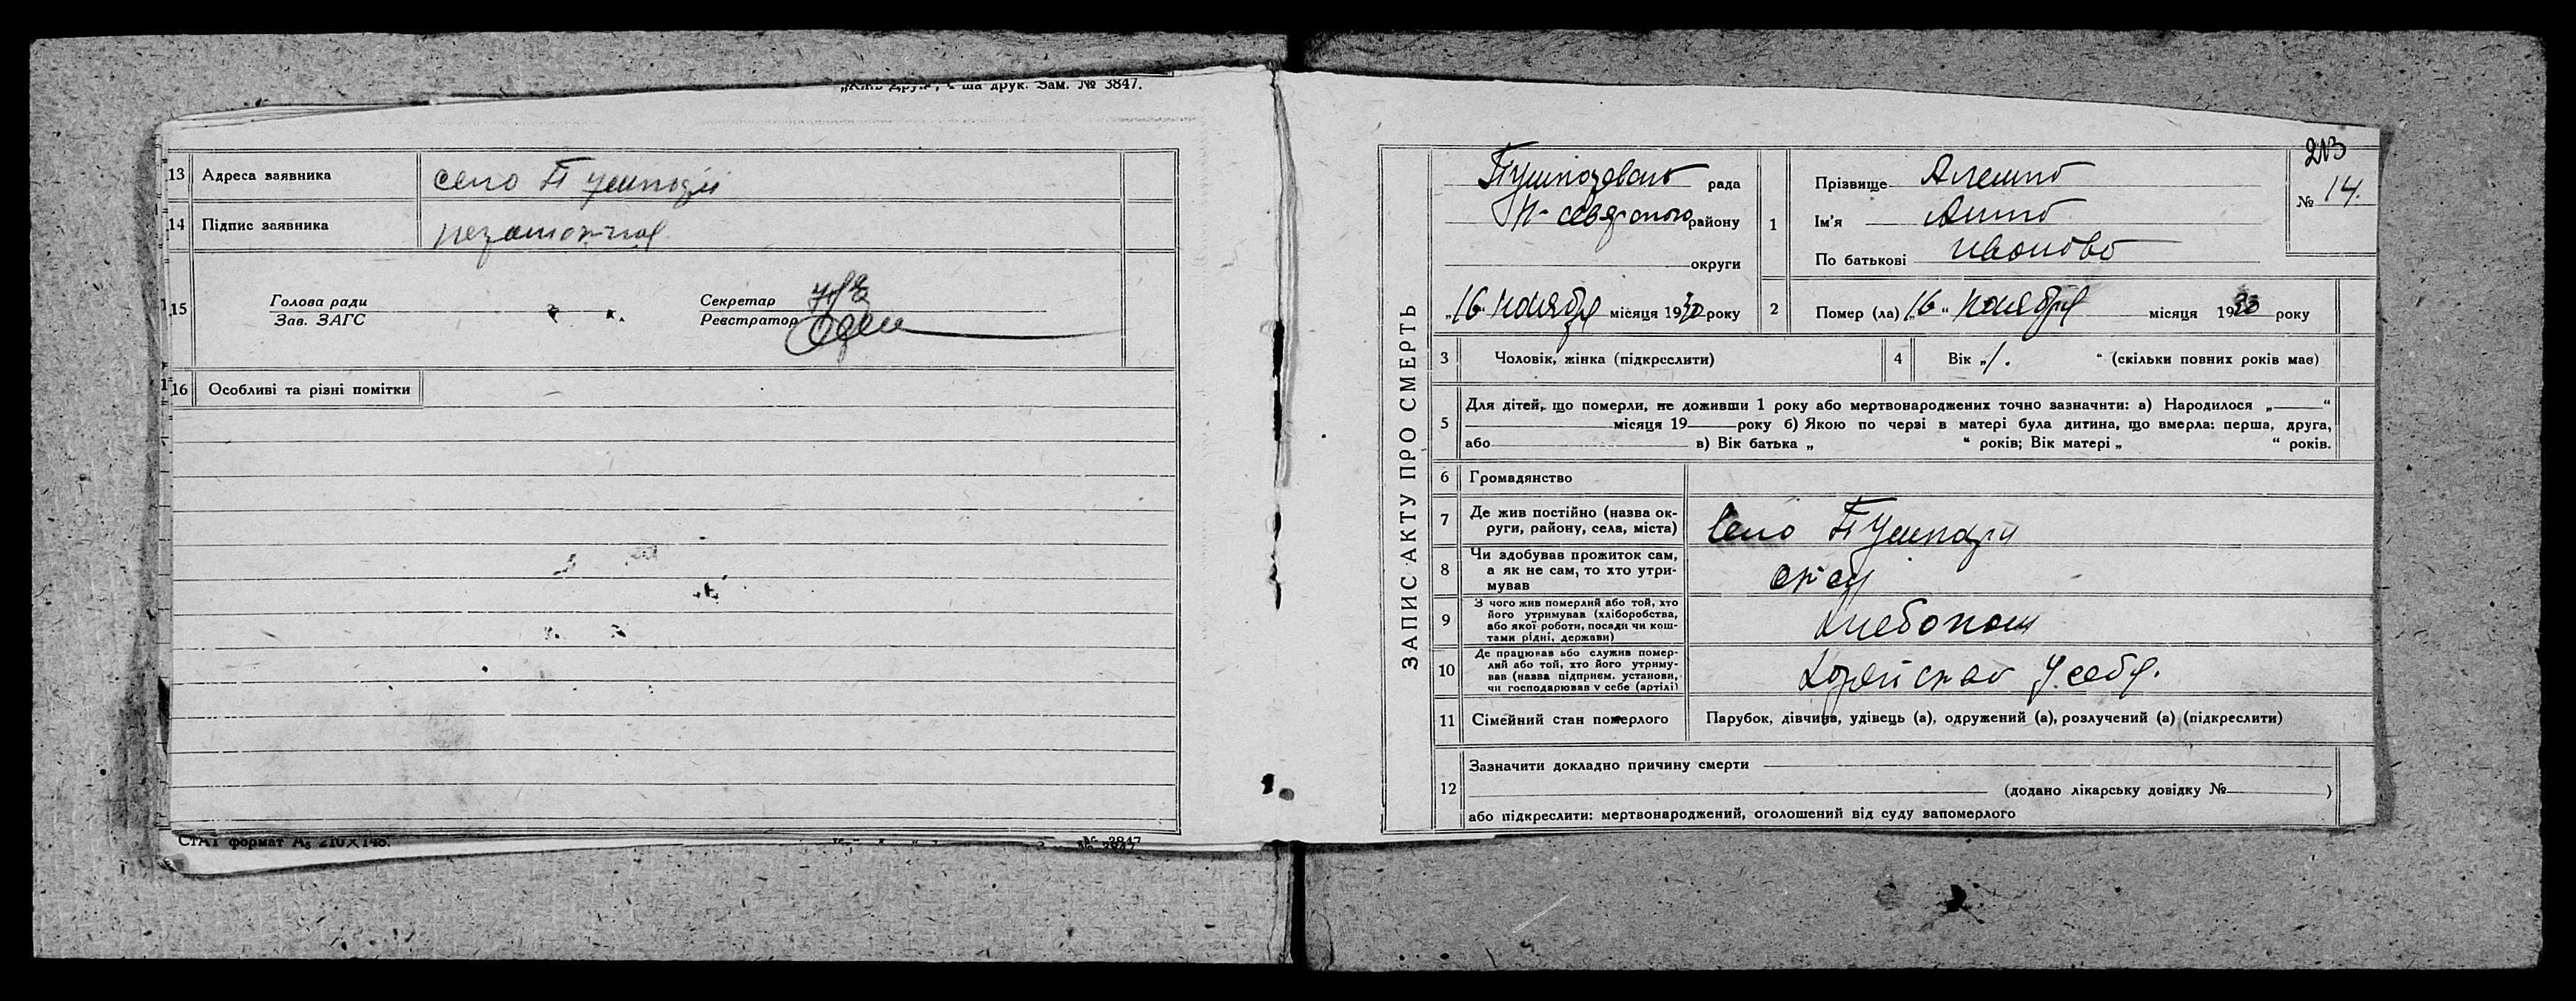 друк. Зам. № 3847.
13 Адреса заявника село Пушкари
14 Підпис заявника
15 Голова ради
Зав. ЗАГС
Секретар
Реєстратор
16 Особливі та різні помітки
СТАТ формат А5 210×148.
ЗАПИС АКТУ ПРО СМЕРТЬ
рада
Н-северского району
округи
„16" ноября місяця 19 року
213
№ 14.
1 Прізвище Алешко
Ім'я Анна
По батькові Иванова
2 Помер (ла) „16" ноября місяця 19 року
3 Чоловік, жінка (підкреслити)
4 Вік „1." (скільки повних років має)
5 Для дітей, що померли, не доживши 1 року або мертвонароджених точно зазначити: а) Народилося „ "
місяця 19 року б) Якою по черзі в матері була дитина, що вмерла: перша, друга,
або в) Вік батька „ " років; Вік матері „ " років.
6 Громадянство
7 Де жив постійно (назва ок-
руги, району, села, міста) Село Пушкари
8 Чи здобував прожиток сам,
а як не сам, то хто утри-
мував отец
9 З чого жив померлий або той, хто
його утримував (хліборобства,
або якої роботи, посади чи кош-
тами рідні, держави) хлебопаш
10 Де працював або служив помер-
лий або той, хто його утриму-
вав (назва підприєм. установи,
чи господарював у себе (артілі) у себя.
11 Сімейний стан померлого Парубок, дівчина, удівець (а), одружений (а), розлучений (а) (підкреслити)
12 Зазначити докладно причину смерти
(додано лікарську довідку № )
або підкреслити: мертвонароджений, оголошений від суду запомерлого